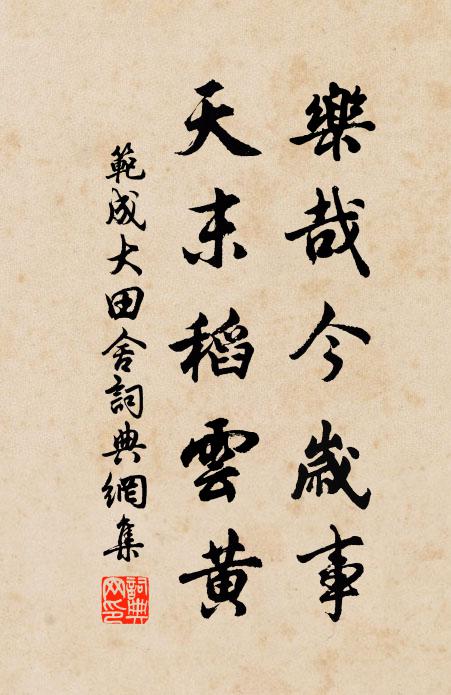 樂哉今歲事
天末稻雲黃
範成大田舍詞典網集
詞典網印